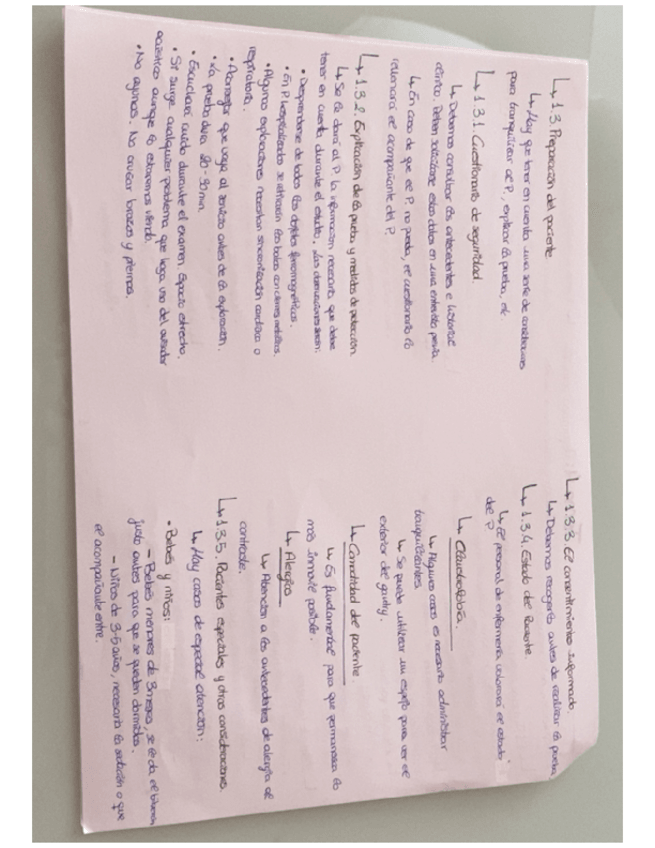 ↳ 1.3. Preparación del paciente
↳ Hay que tener en cuenta una serie de consideraciones
para tranquilizar al P, explicar la prueba, etc.
↳ 1.3.1. Cuestionario de seguridad.
↳ Debemos consultar los antecedentes e historial
clínico. Deben solicitarse estos datos en una entrevista previa.
↳ En caso de que el P. no pueda, el cuestionario lo
rellenará el acompañante del P.
↳ 1.3.2. Explicación de la prueba y medidas de protección
↳ Se le dará al P. la información necesaria que debe
tener en cuenta durante el estudio. Las
• Desprenderse de todos los objetos ferromagnéticos.
• En P. hospitalizados se utilizan las batas con cierres metálicos.
• Algunas exploraciones necesitan sincronización cardiaca o
respiratoria.
• Aconsejar que vaya al servicio antes de la exploración.
• La prueba dura 20-90 min.
• Escuchará ruido durante el examen. Espacio estrecho.
• Si surge cualquier problema que haga uso del avisador
acústico aunque lo estaremos viendo.
• No ayunas. No cruzar brazos y piernas.
↳ 1.3.3. El consentimiento informado.
↳ Debemos recogerlo antes de realizar la prueba
↳ 1.3.4. Estado del Paciente.
↳ El personal de enfermería valorará el estado
del P.
↳ Claustrofobia.
↳ Algunos casos es necesario administrar
tranquilizantes.
↳ Se puede utilizar un espejo para ver el
exterior del gantry.
↳ Comodidad del paciente.
↳ Es fundamental para que permanezca lo
más inmóvil posible.
↳ Alergias
↳ Atención a los antecedentes de alergia al
contraste.
↳ 1.3.5. Pacientes especiales y otras consideraciones.
↳ Hay casos de especial atención:
• Bebés y niños:
– Bebés menores de 3 meses, se le da el biberón
justo antes para que se queden dormidos.
– Niños de 3-5 años, necesaria la sedación o que
el acompañante entre.